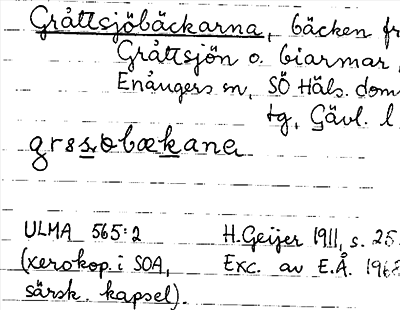 Gråttsjöbäckarna, bäcken fr
Gråttsjön o. biarmar,
Enångers sn, SÖ Häls. dom
tg, Gävl. l
ULMA 565:2 H. Geijer 1911, s. 25
(xerokop. i SOA, Exc. av E.Å. 196
särsk. kapsel).